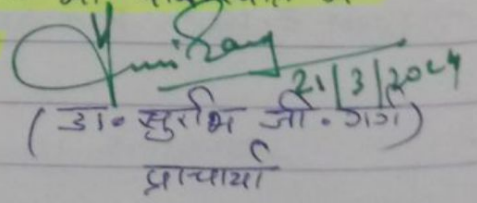 21/3/2024
(डा॰ सुरभि जी॰ गर्ग)
प्राचार्या